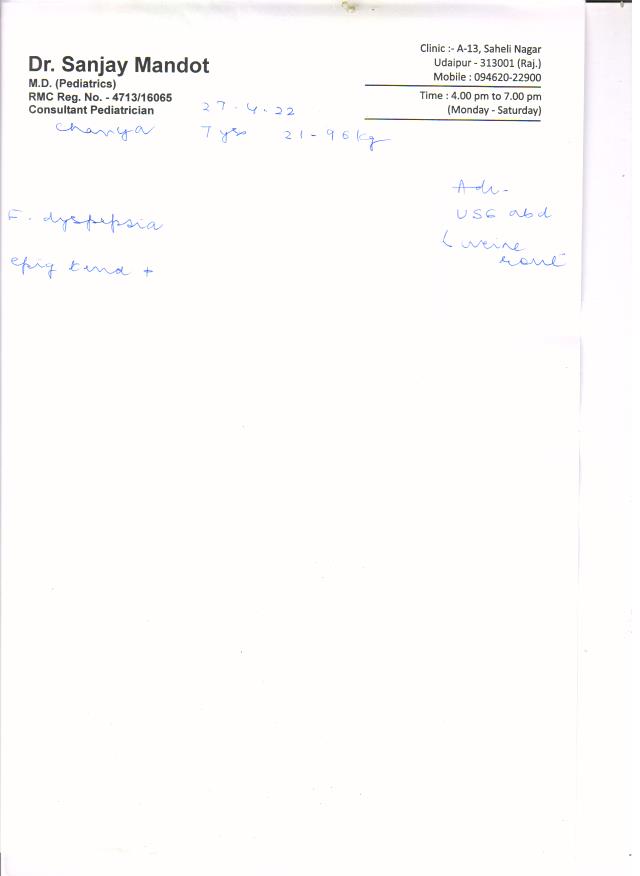 Dr. Sanjay Mandot
M.D. (Pediatrics)
RMC Reg. No. - 4713/16065
Consultant Pediatrician
Clinic :- A-13, Saheli Nagar
Udaipur - 313001 (Raj.)
Mobile : 094620-22900
Time : 4.00 pm to 7.00 pm
(Monday - Saturday)
27.4.22
7 yrs 21-96 kg
F. dyspepsia
epig tend +
Adv-
USG abd
urine
rout